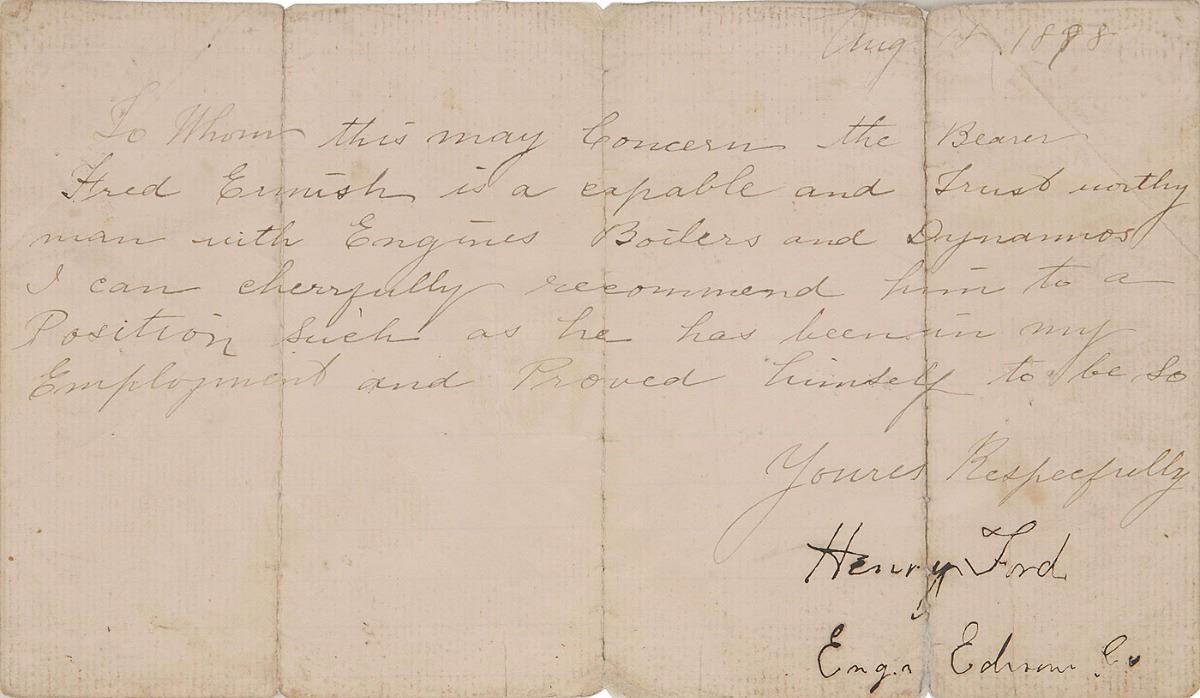 Aug 1898
To Whom this may Concern the Bearer
Fred Ermish is a capable and Trust worthy
man with Engines Boilers and Dynamos
I can cherrfully recommend him to a
Position Such as he has been in my
Employment and Proved himself to be so
Youres Respecfully
Henry Ford
Engr Edison Co